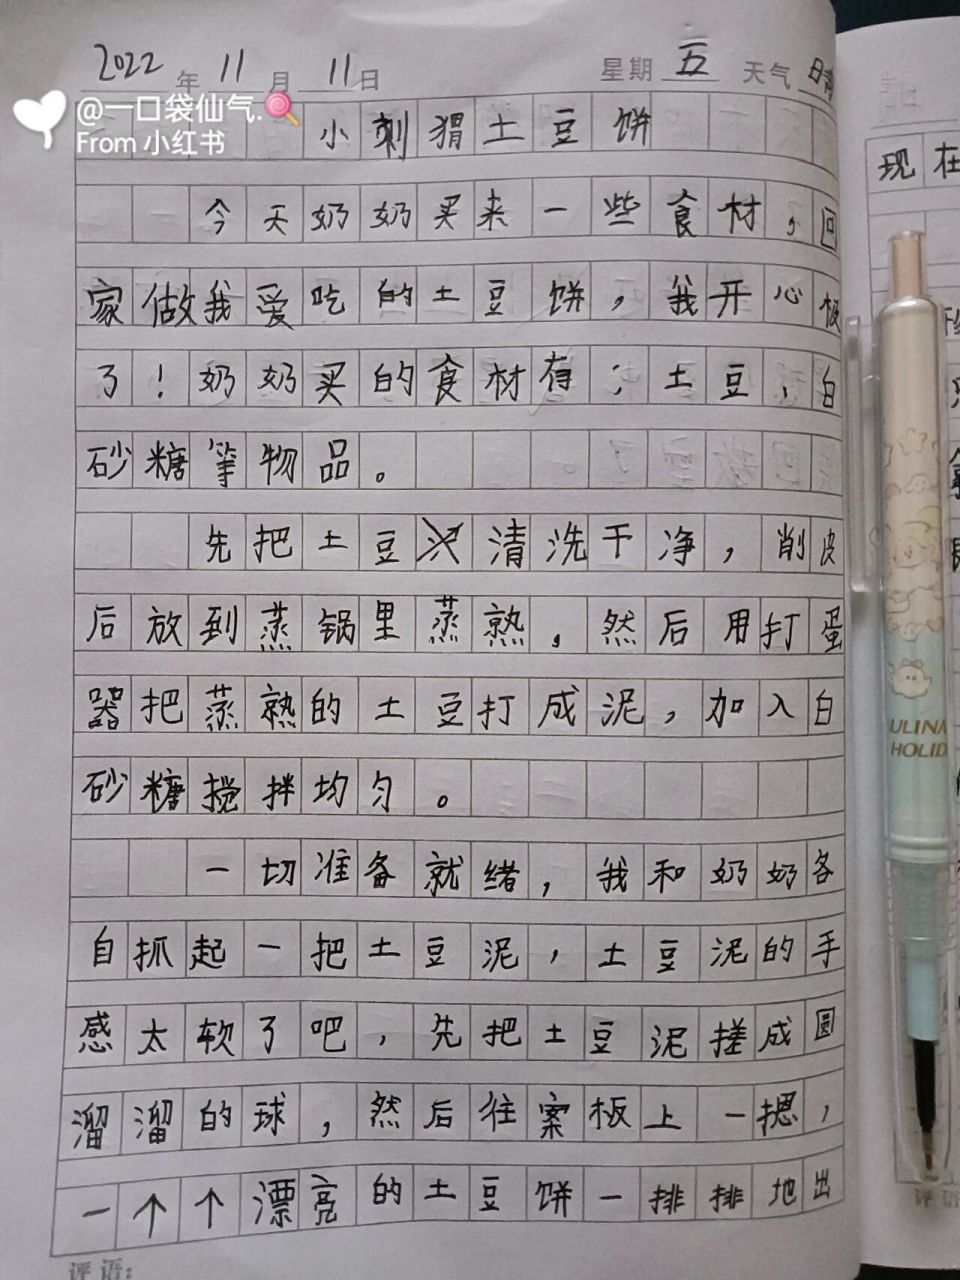 2022年11月11日 星期五 天气晴
@一口袋仙气.
From 小红书
小刺猬土豆饼
今天奶奶买来一些食材，回
家做我爱吃的土豆饼，我开心极
了！奶奶买的食材有：土豆、白
砂糖等物品。
先把土豆清洗干净，削皮
后放到蒸锅里蒸熟，然后用打蛋
器把蒸熟的土豆打成泥，加入白
砂糖搅拌均匀。
一切准备就绪，我和奶奶各
自抓起一把土豆泥，土豆泥的手
感太软了吧，先把土豆泥搓成圆
溜溜的球，然后往案板上一摁，
一个个漂亮的土豆饼一排排地出
评语：
现在
ULINA
HOLID
评语